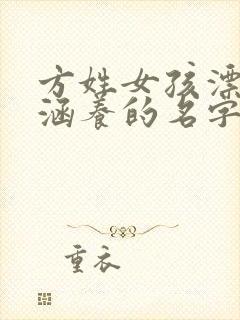 方姓女孩漂
涵养的名字
重衣